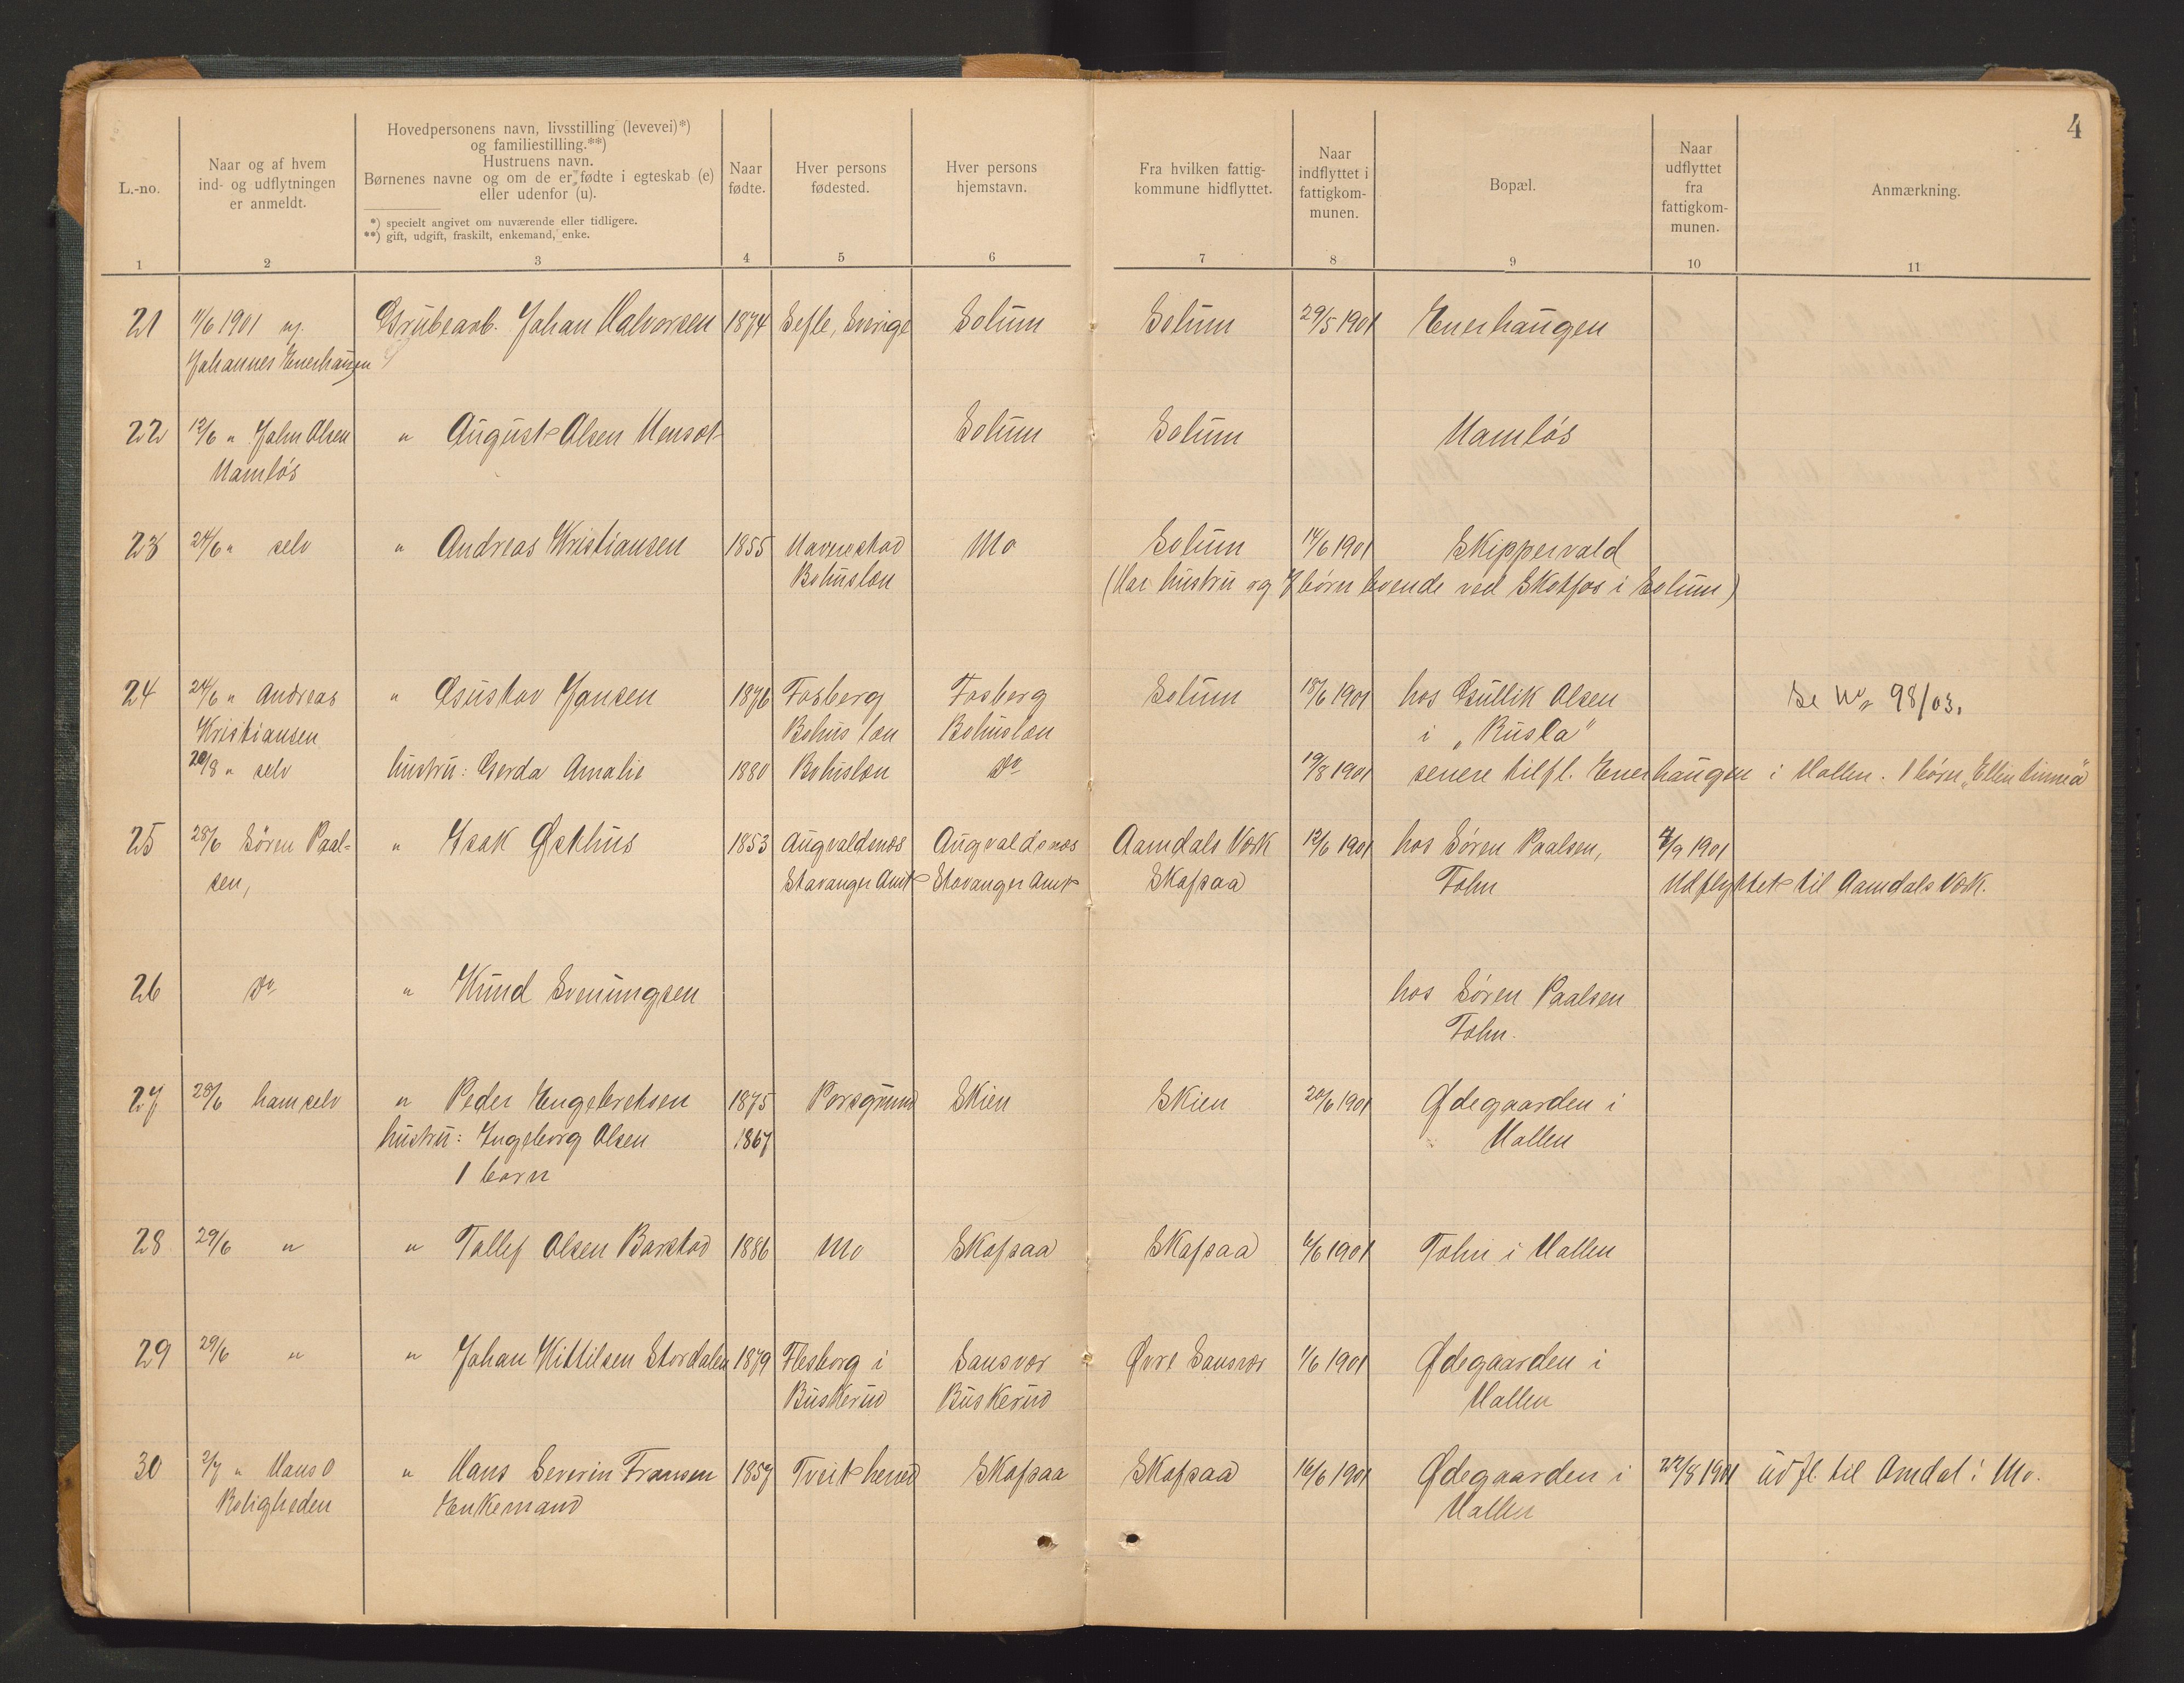 4
Hovedpersonens navn, livsstilling (levevei)*)
og familiestilling.**)
Hustruens navn.
Børnenes navne og om de er fødte i egteskab (e)
eller udenfor (u).
*) specielt angivet om nuværende eller tidligere.
**) gift, udgift, fraskilt, enkemand, enke.
L.-no.
Naar og af hvem
ind- og udflytningen
er anmeldt.
Naar
fødte.
Hver persons
fødested.
Hver persons
hjemstavn.
Fra hvilken fattig-
kommune hidflyttet.
Naar
indflyttet i
fattigkom-
munen.
Bopæl.
Naar
udflyttet
fra
fattigkom-
munen.
Anmærkning.
1 2 3 4 5 6 7 8 9 10 11
21 11/6 1901 Grubearb. Johan Halvorsen 1874 Gefle, Sverige Solum Solum 29/5 1901 Enerhaugen
Johannes Enerhaugen
22 12/6 " John Olsen " August Olsen Uensæt Solum Solum Namløs
Namløs
23 24/6 " selv " Andreas Kristiansen 1855 Navnestad Mo Solum 14/6 1901 Skippervald
Bohuslæn (Har hustru og 7 børn boende ved Skotfos i Solum)
24 24/6 " Andreas " Gustav Jansen 1876 Fosberg Fosberg Solum 18/6 1901 hos Gullik Olsen Se No 98/03.
Kristiansen Bohuslæn Bohuslæn i "Rusla"
20/8 " selv hustru: Gerda Amalie 1880 Bohuslæn Do 19/8 1901 senere tilfl. Enerhaugen i Hallen. 1 børn, "Ellen Linnea"
25 28/6 Søren Paal- " Isak Østhus 1853 Augvaldsnæs Augvaldsnæs Aamdals Værk 12/6 1901 hos Søren Paalsen, 4/9 1901
sen, Stavanger Amt Stavanger Amt Skafsaa Tohn Udflyttet til Aamdals Værk.
26 Do " Knud Sveningsen hos Søren Paalsen
Tohn.
27 28/6 ham selv " Peder Engebretsen 1875 Porsgrund Skien Skien 20/6 1901 Ødegaarden i
hustru: Ingeborg Olsen 1867 Hallen
1 barn
28 29/6 " " Tallef Olsen Barstad 1886 Mo Skafsaa Skafsaa 6/6 1901 Tohn i Hallen
29 29/6 " " Johan Kittilsen Stordalen 1879 Flesberg i Sansvær Øvre Sansvær 1/6 1901 Ødegaarden i
Buskerud Buskerud Hallen
30 2/7 " Hans O " Hans Severin Fransen 1857 Tveit herred Skafsaa Skafsaa 16/6 1901 Ødegaarden i 22/8 1901 udfl. til Omdal i Mo.
Boligheden Enkemand Hallen